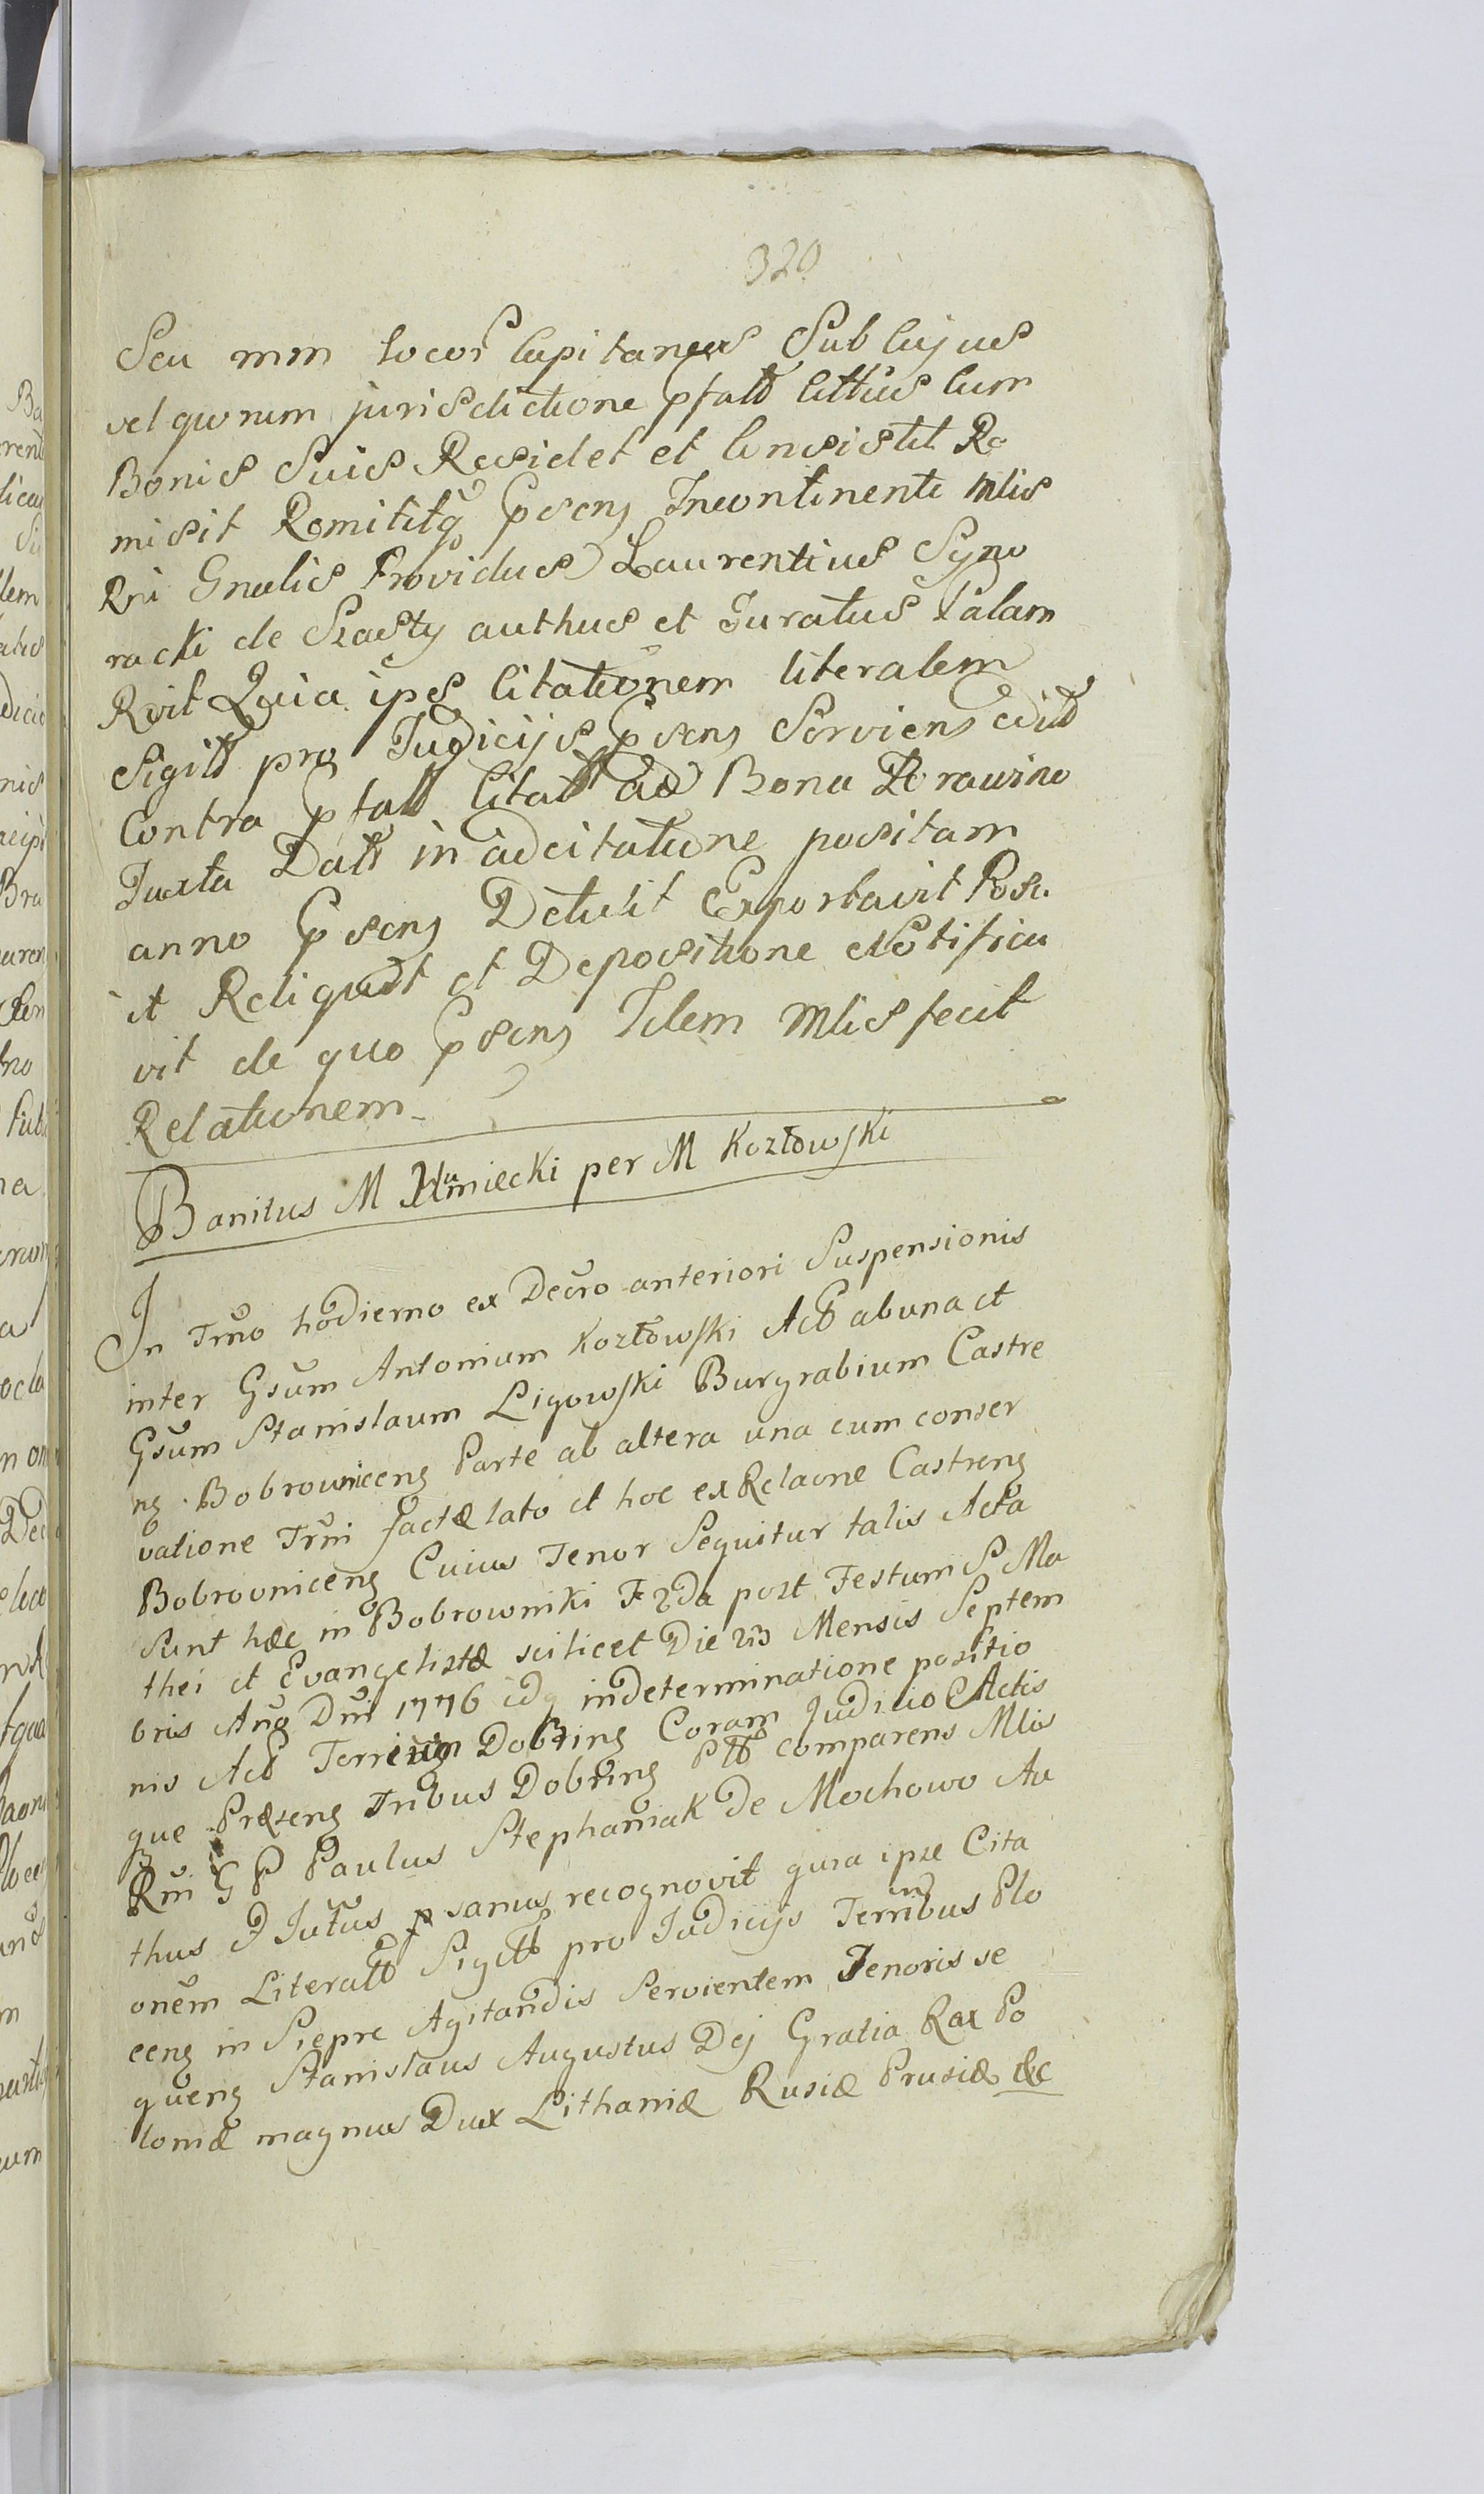 320
Seu mm locor Capitaneus Sub Cujus
vel quorum jurisdictione pfatt Cittus Cum
Bonis Suis Residet et Consistit Re
misit Remititq psens Incontinenti Mlis
Rni Gnalis Providus Laurentius Syno
racki de Szasty authus et Juratus Palam
Rvit Quia ipse Citationem literalem
Sigill pro Judicijs psens Serviens edit
Contra pfatt Citatt ad Bona Zorawino
Juxta Datt in adcitatione positam
anno psens Detulit Exportavit Posu
it Reliquit et Depositione Notifica
vit de quo psens Idem Mlis fecit
Relationem
Banitus M Humiecki per M Kozłowski
In Trno hodierno ex Decro anteriori Suspensionis
inter Gsum Antonium Kozłowski Act ab una et
Gsum Stanislaum Ligowski Burgrabium Castre
ns Bobrowniceng Parte ab altera una cum conser
vatione Trni factæ lato et hoc ex Relacne Castreng
Bobrovniceng Cuius Tenor Sequitur talis Acta
Sunt hæc in Bobrowniki F 2da post Festum S Ma
thei et Evangelistæ scilicet Die 23 Mensis Septem
bris Ano Dni 1776 idq indeterminatione positio
nis Act Terreng Dobring Coram Judicio Actis
que Præseng Tribus Dobring Ptt comparens Mlis
Rni G P Paulus Stephaniak de Mochowo Au
thus & Jutus psamus recognovit quia ipse Cita
onem Literatt Sigitt pro Judicijs Terribus Plo
ceng in Siepre Agitandis Servientem Tenoris se
queng Stanislaus Augustus Dej Gratia Rex Po
loniæ magnus Dux Lithaniæ Rusiæ Prusiæ &c